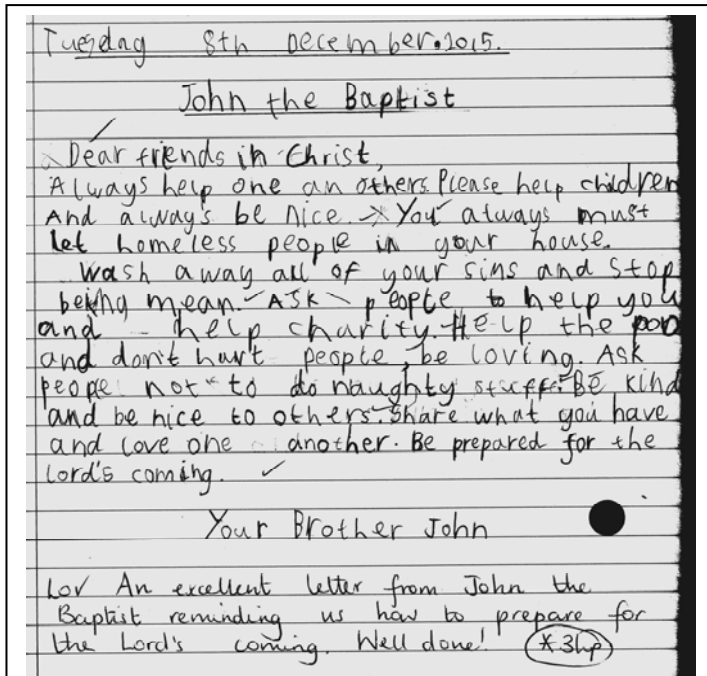 Tuesday 8th December.2015.
John the Baptist
Dear friends in Christ,
Always help one an others. Please help children
And always be nice. You always must
let homeless people in your house.
Wash away all of your sins and stop
being mean. ASK people to help you
and help charity. Help the poo
and don't hurt people, be loving. Ask
people not to do naughty stuff. Be kind
and be nice to others. Share what you have
and love one another. Be prepared for the
Lord's coming.
Your Brother John
LoV An excellent letter from John the
Baptist reminding us how to prepare for
the Lord's coming. Well done! *3hp